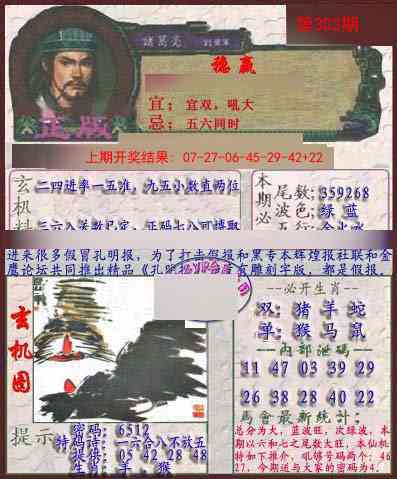 第303期
諸葛亮
稳赢
宜：宜双，吼大
忌：五六同时
正版
上期开奖结果：07-27-06-45-29-42+22
玄机料
二四进率一五准，九五小数直两位
本期必
尾数：359268
波色：绿 蓝
进来很多假冒孔明报，为了打击假报和黑专本辉煌报社联和金
鹰论坛共同推出精品《孔明报
有雕刻字版，都是假报。
玄机图
必开生肖
双：猪 羊 蛇
单：猴 马 鼠
内部泄码
11 47 03 39 29
26 38 28 40 22
馬會最新統計：
总分为大，蓝波旺，次绿波，本
期以六和七之尾数大旺，本仙机
特如下推介，吼够号码两个：46
27，今期送与大家的密码为4.
提示
密码：6512
特码诗：一六合八不放五
提供：05 42 28 48
生肖：羊、猴